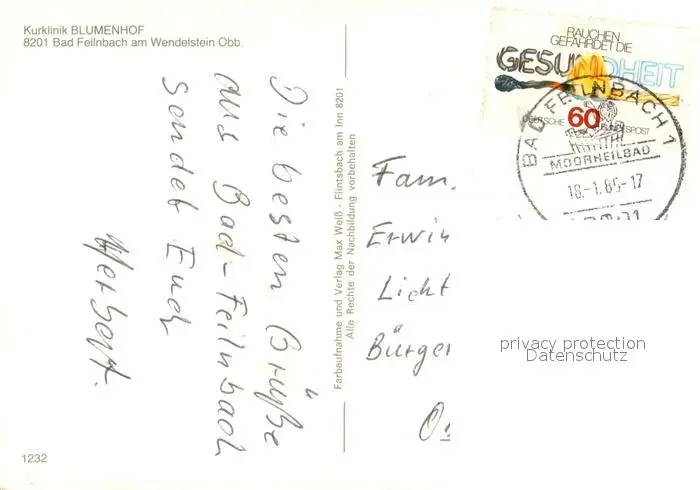 Kurklinik BLUMENHOF
8201 Bad Feilnbach am Wendelstein Obb.
Die besten Grüße
aus Bad-Feilnbach
sendet Euch
Herbert.
1232
Farbaufnahme und Verlag Max Weiß - Flintsbach am Inn 8201
Alle Rechte der Nachbildung vorbehalten
RAUCHEN
GEFÄHRDET DIE
GESUNDHEIT
DEUTSCHE 60 BUNDESPOST
BAD FEILNBACH 1
MOORHEILBAD
18.-1.85-17
Fam.
Erwin
Licht
Bürger
privacy protection
Datenschutz